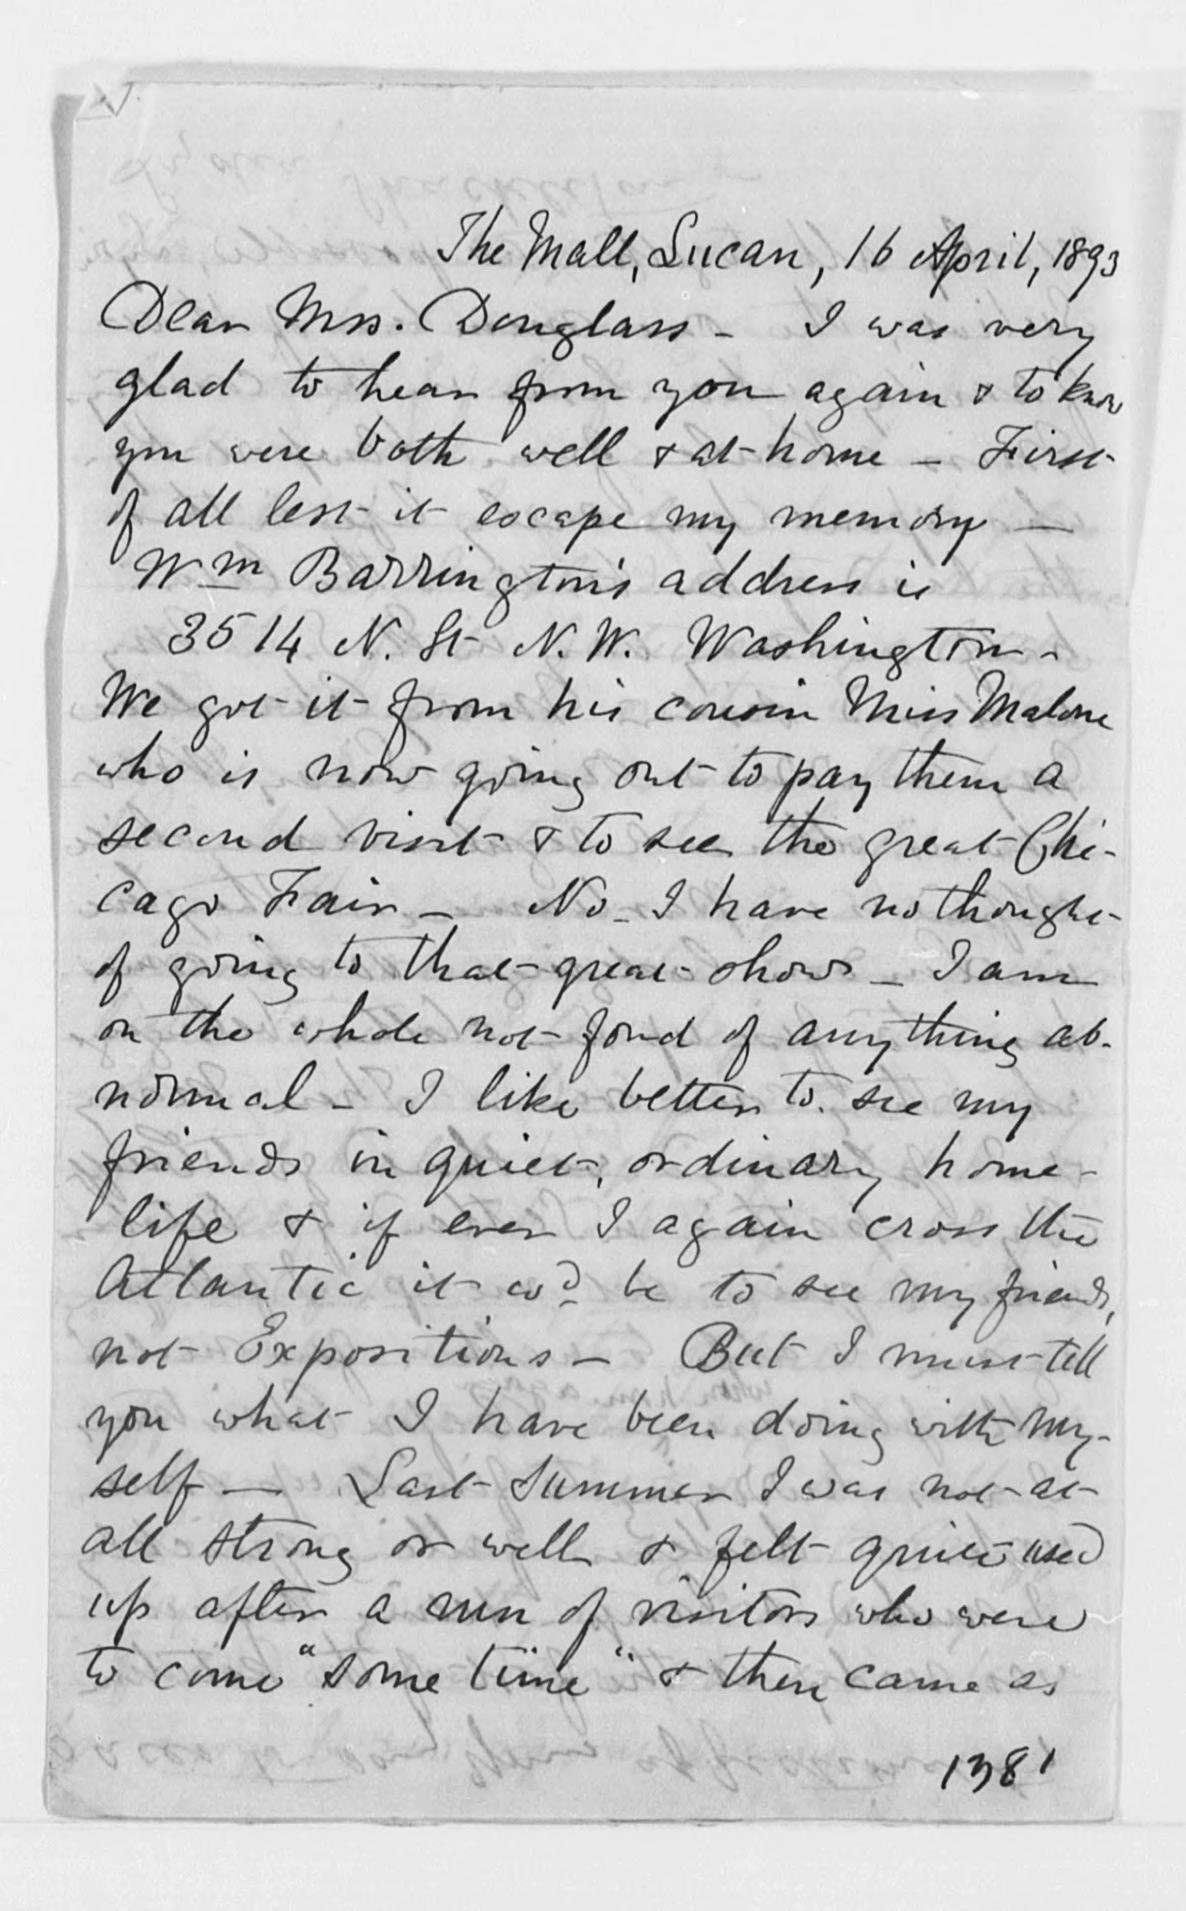 The Mall, Lucan, 16 April, 1893
Dear Mrs. Douglass - I was very
glad to hear from you again & to know
you were both well & at home - First
of all lest it escape my memory —
Wm Barrington's address is
3514 N. St N.W. Washington -
We got it from his cousin Miss Malone
who is now going out to pay them a
second visit & to see the great Chi-
cago Fair - No - I have no thought
of going to that great show - I am
on the whole not fond of anything ab-
normal - I like better to see my
friends in quiet, ordinary home-
life & if ever I again cross the
Atlantic it wd be to see my friends,
not Expositions - But I must tell
you what I have been doing with my-
self — Last Summer I was not at
all strong or well & felt quite used
up after a run of visitors who were
to come "some time" & then came as
1381